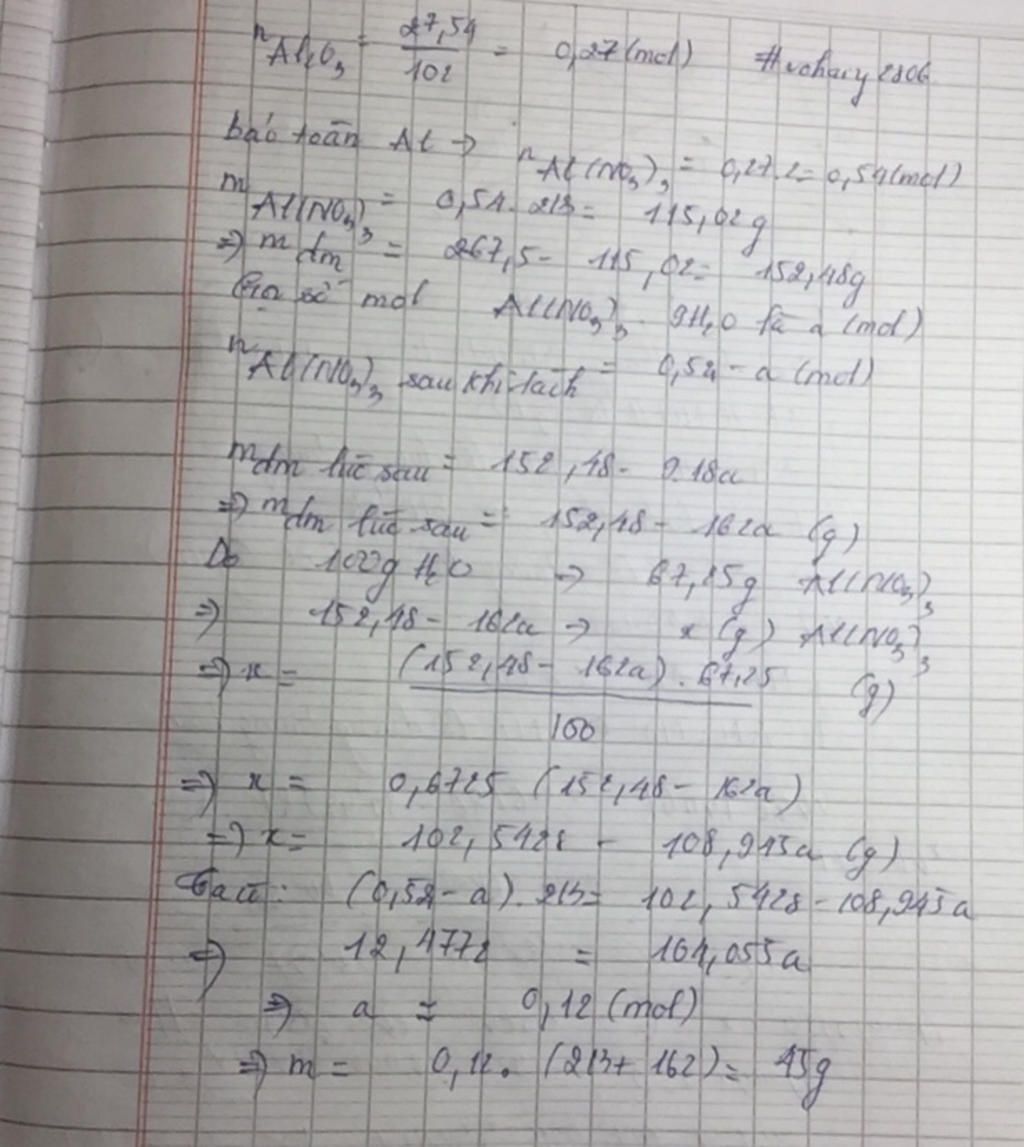 nAl2O3 = 27,54/102 = 0,27 (mol) #vohauy2806
bảo toàn Al → nAl(NO3)3 = 0,27.2 = 0,54 (mol)
mAl(NO3)3 = 0,54.213 = 115,02g
⇒ mdm = 267,5 - 115,02 = 152,48g
Gọi số mol Al(NO3)3.9H2O là a (mol)
nAl(NO3)3 sau khi tách = 0,54 - a (mol)
mdm lúc sau = 152,48 - 9.18a
⇒ mdm lúc sau = 152,48 - 162a (g)
Do 100g H2O → 67,25g Al(NO3)3
⇒ 152,48 - 162a → x (g) Al(NO3)3
⇒ x = (152,48 - 162a).67,25 (g)
100
⇒ x = 0,6725 (152,48 - 162a)
⇒ x = 102,5428 - 108,945a (g)
(0,54 - a).213 = 102,5428 - 108,945a
⇒ 12,4772 = 104,055a
⇒ a = 0,12 (mol)
⇒ m = 0,12.(213 + 162) = 45g